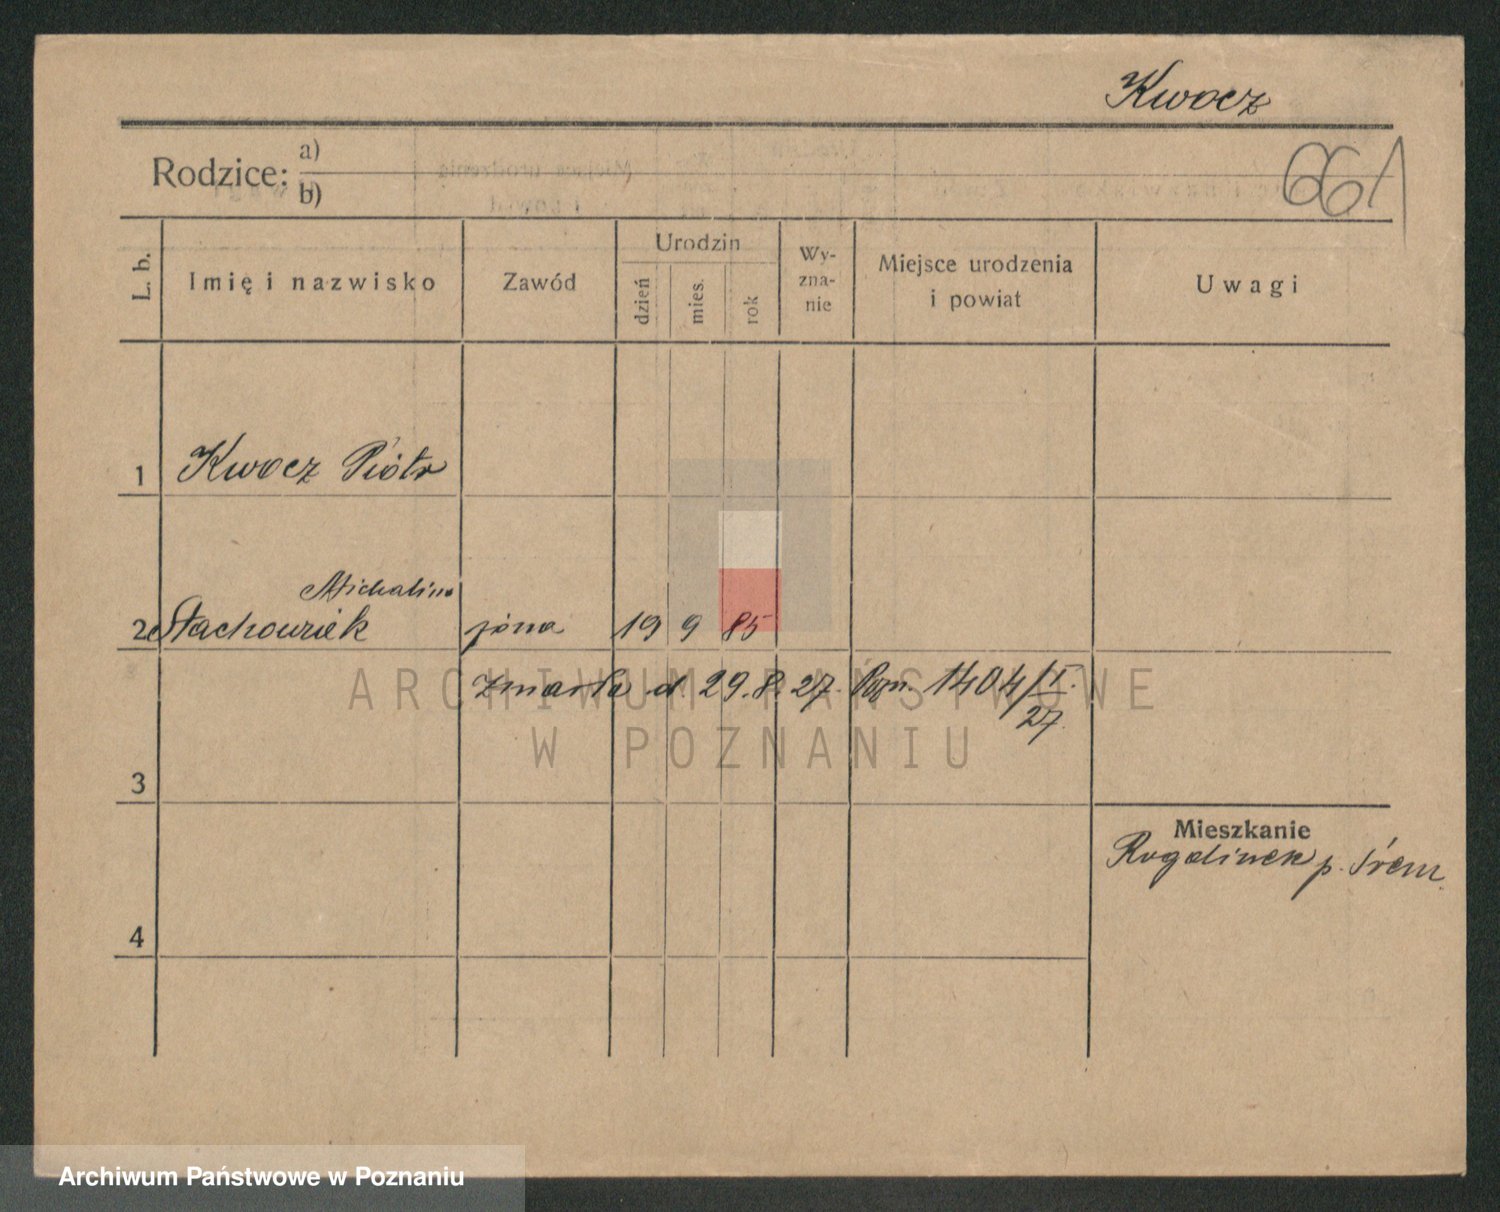 Kwocz
661
Rodzice: a)
b)
L. b.
Imię i nazwisko
Zawód
Urodzin
dzień
mies.
rok
Wy-
zna-
nie
Miejsce urodzenia
i powiat
Uwagi
1 Kwocz Piotr
Michalina
2 Stachowiek żona 19 9 85
zmarła d. 29.8.27. Pozn. 1404/II.
27.
ARCHIWUM PAŃSTWOWE
W POZNANIU
3
Mieszkanie
Rogalinek p. Śrem.
4
Archiwum Państwowe w Poznaniu